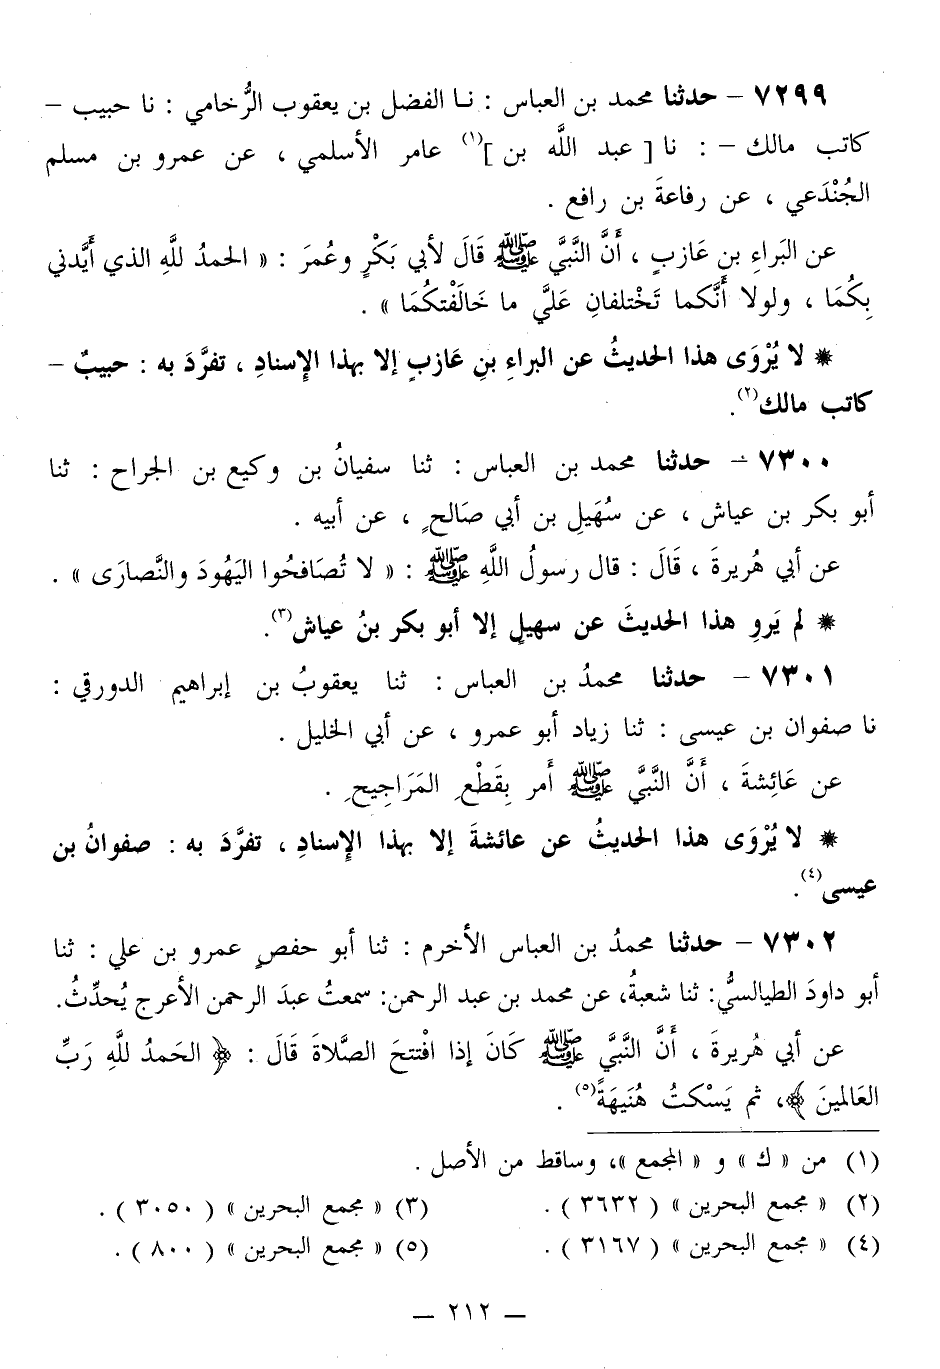 ٧٢٩٩ – حدثنا محمد بن العباس : نا الفضل بن يعقوب الرُّخامي : نا حبيب –
كاتب مالك – : نا [ عبد اللَّه بن ](١) عامر الأسلمي ، عن عمرو بن مسلم
الجُنْدَعي ، عن رفاعةَ بن رافع .
عن البَراءِ بنِ عَازبٍ ، أَنَّ النَّبيَّ ﷺ قَالَ لأبي بَكْرٍ وعُمرَ : « الحمدُ للَّهِ الذي أَيَّدني
بِكُمَا ، ولولا أَنَّكما تَخْتلفانِ عَليَّ ما خَالَفْتكُمَا » .
* لا يُرْوَى هذا الحديثُ عن البراءِ بنِ عَازبٍ إلا بهذا الإسنادِ ، تفرَّدَ به : حبيبٌ –
كاتب مالك(٢).
٧٣٠٠ – حدثنا محمد بن العباس : ثنا سفيانُ بن وكيع بن الجراح : ثنا
أبو بكر بن عياش ، عن سُهَيلِ بن أبي صَالحٍ ، عن أبيه .
عن أبي هُريرةَ ، قَالَ : قال رسولُ اللَّهِ ﷺ : « لا تُصَافحُوا اليَهُودَ والنَّصارَى » .
* لم يَروِ هذا الحديثَ عن سهيلٍ إلا أبو بكر بنُ عياش(٣).
٧٣٠١ – حدثنا محمدُ بن العباس : ثنا يعقوبُ بن إبراهيم الدورقي :
نا صفوان بن عيسى : ثنا زياد أبو عمرو ، عن أبي الخليل .
عن عَائِشةَ ، أَنَّ النَّبيَّ ﷺ أَمر بِقَطْعِ المَرَاجيحِ .
* لا يُرْوَى هذا الحديثُ عن عائشةَ إلا بهذا الإسنادِ ، تفرَّدَ به : صفوانُ بن
عيسى(٤).
٧٣٠٢ – حدثنا محمدُ بن العباس الأخرم : ثنا أبو حفصٍ عمرو بن علي : ثنا
أبو داودَ الطيالسيُّ: ثنا شعبةُ، عن محمد بن عبد الرحمن: سمعتُ عبدَ الرحمن الأعرج يُحدِّثُ.
عن أبي هُريرةَ ، أَنَّ النَّبيَّ ﷺ كَانَ إذا افْتتحَ الصَّلاةَ قَالَ : ﴿ الحَمدُ للَّهِ رَبِّ
العَالمينَ ﴾، ثم يَسْكتُ هُنَيهَةً(٥) .
(١) من « ك » و « المجمع »، وساقط من الأصل .
(٢) « مجمع البحرين » ( ٣٦٣٢ ) . (٣) « مجمع البحرين » ( ٣٠٥٠ ) .
(٤) « مجمع البحرين » ( ٣١٦٧ ) . (٥) « مجمع البحرين » ( ٨٠٠ ) .
– ٢١٢ –